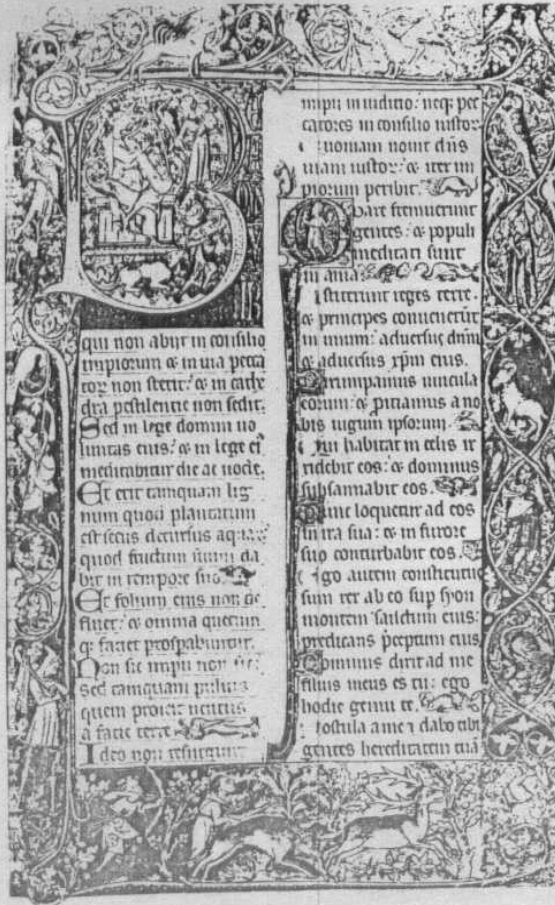 B
qui non abijt in consilio
impiorum & in via pecca
tor non stetit: & in cathe
dra pestilentie non sedit.
Sed in lege domini uo
luntas eius: & in lege ei
meditabitur die ac nocte.
Et erit tamquam lig
num quod plantatum
est secus decursus aquar
quod fructum suum da
bit in tempore suo.
Et folium eius non de
fluet: & omnia quecun
q; faciet prospabuntur.
Non sic impii non sic:
sed tamquam puluis
quem proicit uentus
a facie terre
Ideo non resurgunt
impii in iuditio: neq; pec
catores in consilio iustor
uoniam nouit dñs
uiam iustor: & iter im
piorum peribit.
Q
uare fremuerunt
gentes: & populi
meditati sunt
in ania:
stiterunt reges terre.
& principes conuenerūt
in unum: aduersus dnm
& aduersus xpm eius.
Dirumpamus uincula
eorum: & piciamus a no
bis iugum ipsorum.
Qui habitat in celis ir
ridebit eos: & dominus
subsannabit eos.
Tunc loquetur ad eos
in ira sua: & in furore
suo conturbabit eos.
Ego autem constitutus
sum rex ab eo sup syon
montem sanctum eius:
predicans preceptum eius
Dominus dixit ad me
filius meus es tu: ego
hodie genui te.
Postula a me & dabo tibi
gentes hereditatem tuā